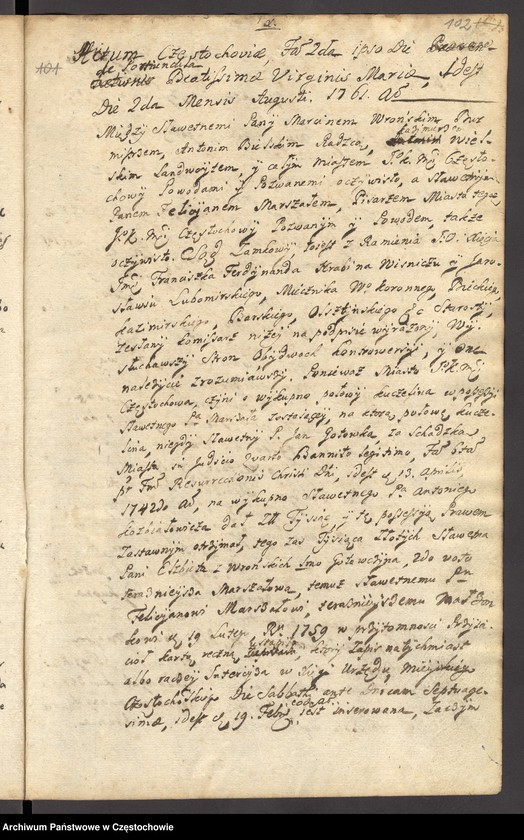 102
Actum Częstochoviæ, Fᵃ 2da ipso Die
104 de Portiuncula Beatissimæ Virginis Mariæ, Idest
Die 2da Mensis Augusti. 1761. Aº
Między Sławetnemi Pany Marcinem Wrońskim Bur
mistrzem, Antonim Bielskim Radzcą, Wiel-
skim Landwóytem, y całym miastem J.K. Mci Często-
chowy Powodami y Pozwanemi oczywisto, a Sławetnym
Panem Felicyanem Marszałem, Pisarzem Miasta tegoż
J.K. Mci Częstochowy Pozwanym y Powodem, także
oczywisto. Sąd Zamkowy, Josyf z Ramienia J.O. Xięcia
Jmci Franciszka Ferdynanda Hrabi na Wiśniczu y Jaro-
sławiu Lubomirskiego, Miecznika Wº koronneg, Bieckieg,
kazimirskiego, Barskiego, Olsztyńskiego &c Starosty,
zesłany komisarz niżey na podpisie wyrażony Wy-
słuchawszy Stron Obÿdwoch kontrowersyi, y one
należycie zrozumiawszy. Ponieważ Miasto J.K. Mci
Częstochowa, czyni o wykupno połowy kuczelina w possessyi
Sławetnego Pª Marszała zostaiącey, na którą połowę kucze-
lina, niegdy Sławetny P. Jan Gołowka, za Schadzką
Miasta in Judicio Bannito legitimo, Fª 6ta
pᵗ Fm Resurrectionis Christi Dni, idest d. 13. Aprilis
1742do Aº, na wykupno Sławetnego Pª Antonieg
kozbiałowicza dał Złł Tysiąc, y tę possessyą Prawem
Zastawnym otrzymał, tego zaś Tysiąca Złotych Sławetna
Pani Elzbieta z Wrońskich 1mo Gołowczyna, 2do voto
teraznieysza Marszałowa, temuż sławetnemu Pu
Felicyanowi Marszałowi, teraznieyszemu Małżon
kowi d. 19 Lutego Ru. 1759 w przytomności Przyia-
cioł kartą ręczną ustąpiła który Zapis natychmiast
albo raczey Intercyza w Xięgi Urzędu, Mieyskiego
Częstochoskieg Die Sabbathi ante Dnicam Septuage-
simæ, idest d. 19. Febr. eodem est inserowana, Zaczym
Archiwum Państwowe w Częstochowie